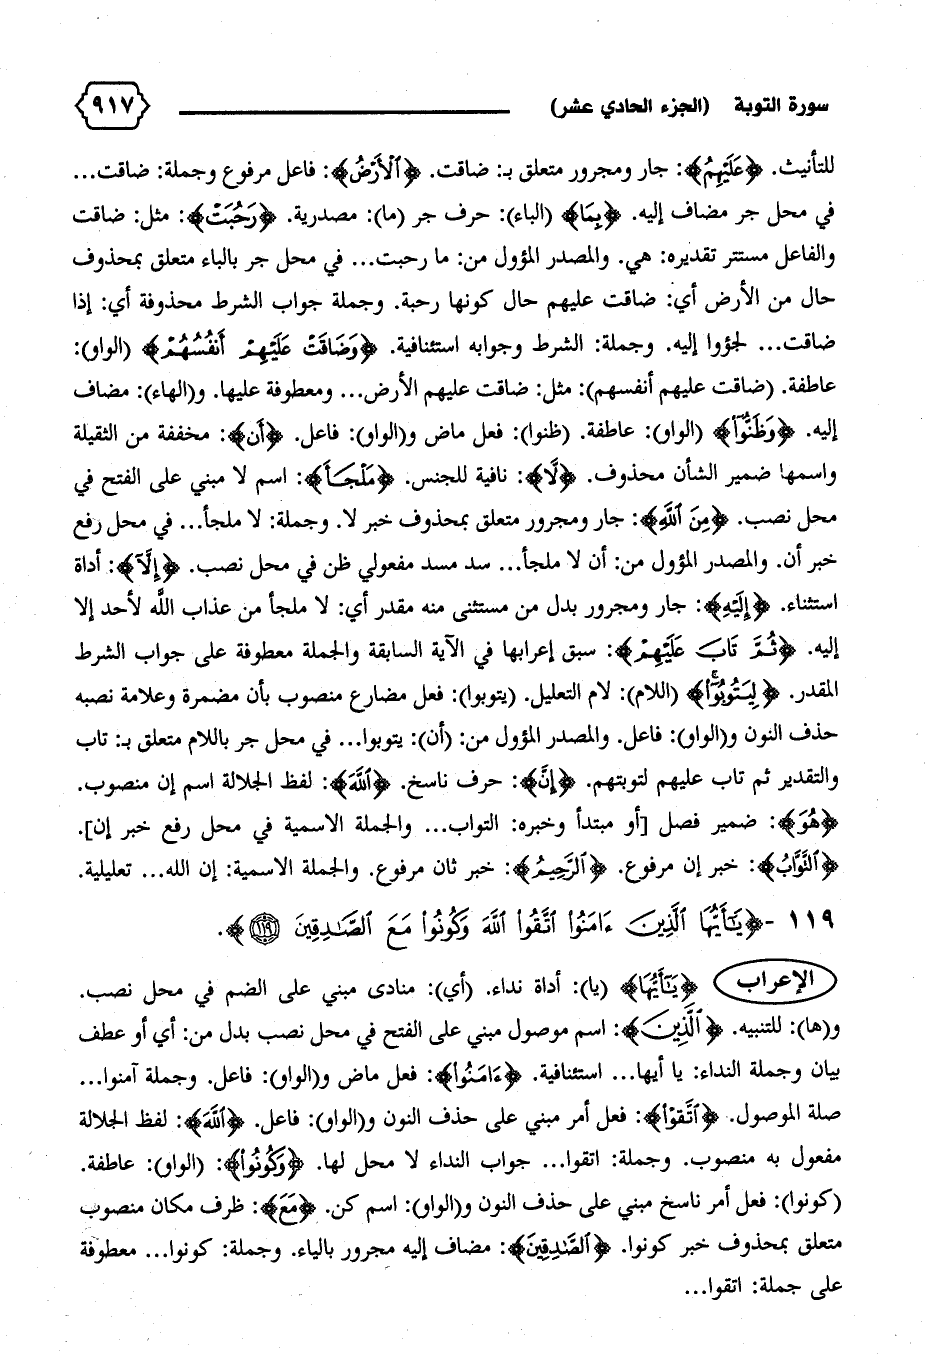 سورة التوبة (الجزء الحادي عشر) ٩١٧
للتأنيث. ﴿عَلَيْهِمُ﴾: جار ومجرور متعلق بـ: ضاقت. ﴿ٱلْأَرْضُ﴾: فاعل مرفوع وجملة: ضاقت...
في محل جر مضاف إليه. ﴿بِمَا﴾ (الباء): حرف جر (ما): مصدرية. ﴿رَحُبَتْ﴾: مثل: ضاقت
والفاعل مستتر تقديره: هي. والمصدر المؤول من: ما رحبت... في محل جر بالباء متعلق بمحذوف
حال من الأرض أي: ضاقت عليهم حال كونها رحبة. وجملة جواب الشرط محذوفة أي: إذا
ضاقت... لجؤوا إليه. وجملة: الشرط وجوابه استئنافية. ﴿وَضَاقَتْ عَلَيْهِمْ أَنفُسُهُمْ﴾ (الواو):
عاطفة. (ضاقت عليهم أنفسهم): مثل: ضاقت عليهم الأرض... ومعطوفة عليها. و(الهاء): مضاف
إليه. ﴿وَظَنُّوٓا۟﴾ (الواو): عاطفة. (ظنوا): فعل ماض و(الواو): فاعل. ﴿أَن﴾: مخففة من الثقيلة
واسمها ضمير الشأن محذوف. ﴿لَّا﴾: نافية للجنس. ﴿مَلْجَأَ﴾: اسم لا مبني على الفتح في
محل نصب. ﴿مِنَ ٱللَّهِ﴾: جار ومجرور متعلق بمحذوف خبر لا. وجملة: لا ملجأ... في محل رفع
خبر أن. والمصدر المؤول من: أن لا ملجأ... سد مسد مفعولي ظن في محل نصب. ﴿إِلَّآ﴾: أداة
استثناء. ﴿إِلَيْهِ﴾: جار ومجرور بدل من مستثنى منه مقدر أي: لا ملجأ من عذاب اللّه لأحد إلا
إليه. ﴿ثُمَّ تَابَ عَلَيْهِمْ﴾: سبق إعرابها في الآية السابقة والجملة معطوفة على جواب الشرط
المقدر. ﴿لِيَتُوبُوٓا۟ۚ﴾ (اللام): لام التعليل. (يتوبوا): فعل مضارع منصوب بأن مضمرة وعلامة نصبه
حذف النون و(الواو): فاعل. والمصدر المؤول من: (أن): يتوبوا... في محل جر باللام متعلق بـ: تاب
والتقدير ثم تاب عليهم لتوبتهم. ﴿إِنَّ﴾: حرف ناسخ. ﴿ٱللَّهَ﴾: لفظ الجلالة اسم إن منصوب.
﴿هُوَ﴾: ضمير فصل [أو مبتدأ وخبره: التواب... والجملة الاسمية في محل رفع خبر إن].
﴿ٱلتَّوَّابُ﴾: خبر إن مرفوع. ﴿ٱلرَّحِيمُ﴾: خبر ثان مرفوع. والجملة الاسمية: إن الله... تعليلية.
١١٩ - ﴿يَٰٓأَيُّهَا ٱلَّذِينَ ءَامَنُوا۟ ٱتَّقُوا۟ ٱللَّهَ وَكُونُوا۟ مَعَ ٱلصَّٰدِقِينَ ١١٩﴾.
الإعراب ﴿يَٰٓأَيُّهَا﴾ (يا): أداة نداء. (أي): منادى مبني على الضم في محل نصب.
و(ها): للتنبيه. ﴿ٱلَّذِينَ﴾: اسم موصول مبني على الفتح في محل نصب بدل من: أي أو عطف
بيان وجملة النداء: يا أيها... استئنافية. ﴿ءَامَنُوا۟﴾: فعل ماض و(الواو): فاعل. وجملة آمنوا...
صلة الموصول. ﴿ٱتَّقُوا۟﴾: فعل أمر مبني على حذف النون و(الواو): فاعل. ﴿ٱللَّهَ﴾: لفظ الجلالة
مفعول به منصوب. وجملة: اتقوا... جواب النداء لا محل لها. ﴿وَكُونُوا۟﴾: (الواو): عاطفة.
(كونوا): فعل أمر ناسخ مبني على حذف النون و(الواو): اسم كن. ﴿مَعَ﴾: ظرف مكان منصوب
متعلق بمحذوف خبر كونوا. ﴿ٱلصَّٰدِقِينَ﴾: مضاف إليه مجرور بالياء. وجملة: كونوا... معطوفة
على جملة: اتقوا...